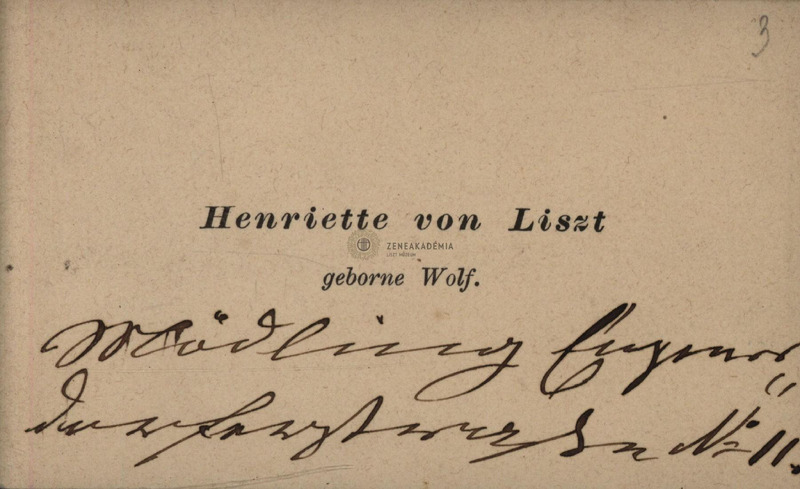 3
Henriette von Liszt
ZENEAKADÉMIA
LISZT MÚZEUM
geborne Wolf.
Mödling
No 11.